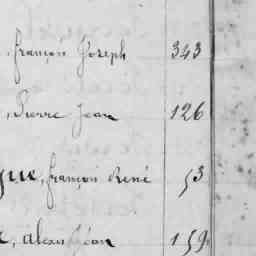 , françois Joseph 343
, Pierre Jean 126
gue, françois René 53
, Alexis Jean 159